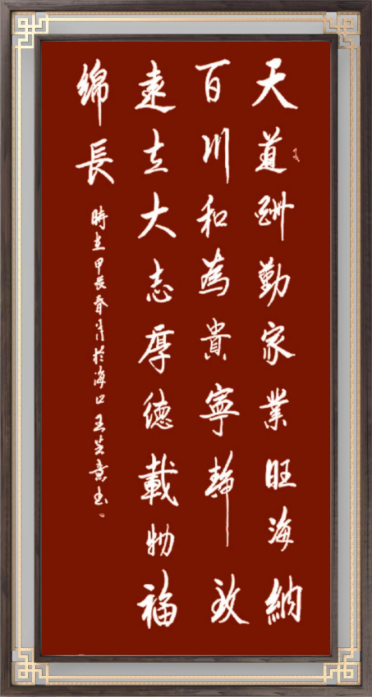 天道酬勤家業旺海納
百川和為貴寧靜致
遠立大志厚德載物福
綿長
時在甲辰春月於海口王書